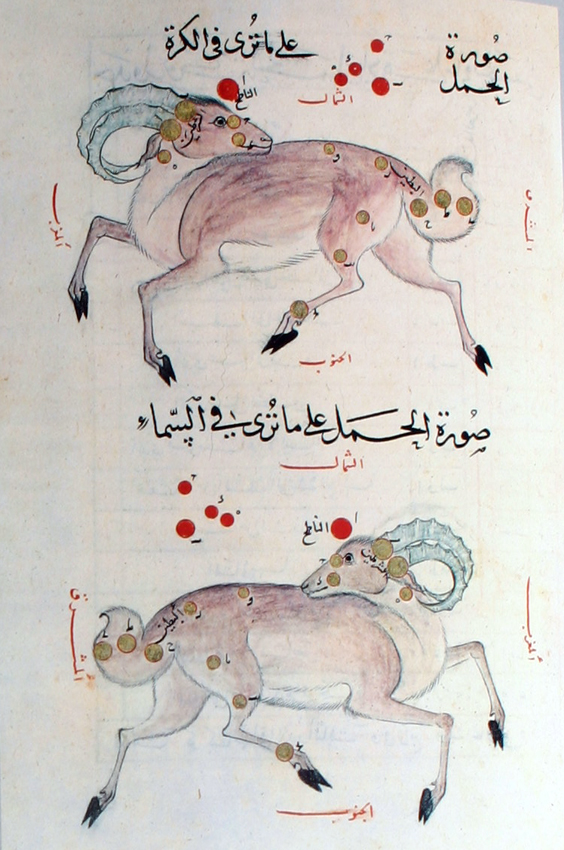 صُورة الحمل
على ما تُرى في الكرة
الشمال
الناطح
الشرطين
البطين
المغرب
المشرق
الجنوب
صُورة الحمل على ما تُرى في السّماء
الشمال
الناطح
الشرطين
البطين
المشرق
المغرب
الجنوب